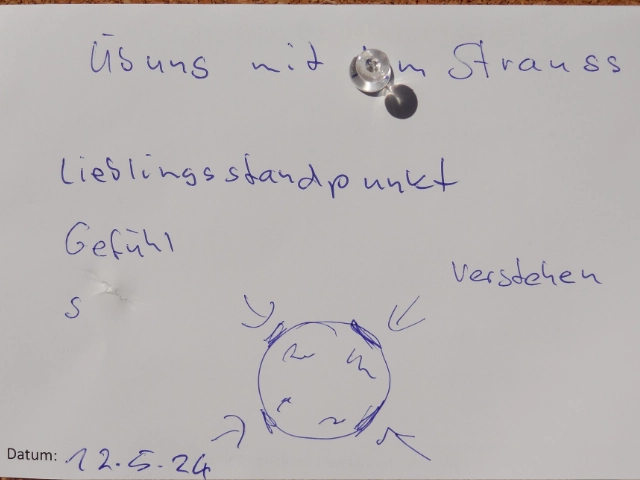 Übung mit Strauss
Lieblingsstandpunkt
Gefühl
Verstehen
s
Datum: 12.5.24